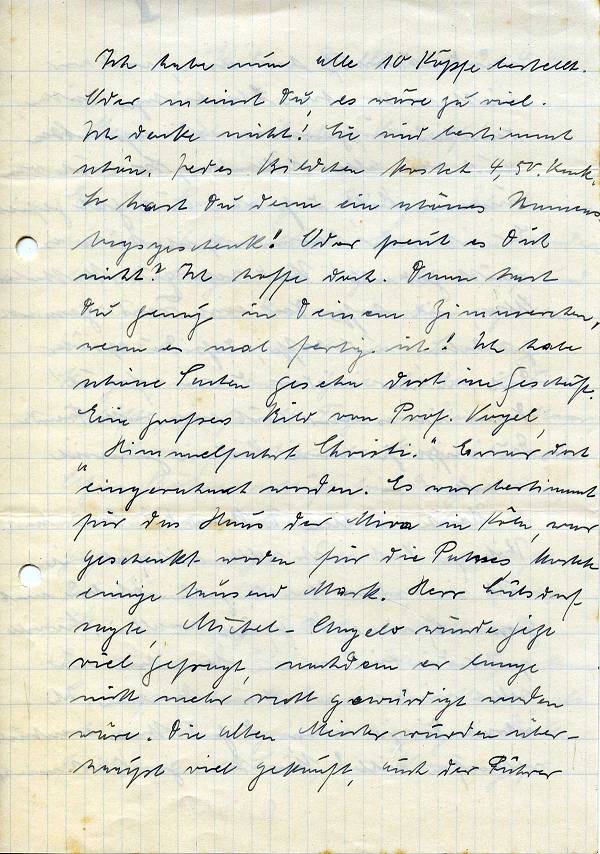 Ich habe nun alle 10 Köpfe bestellt.
Oder meinst Du, es wäre zu viel.
Ich denke nicht! Sie sind bestimmt
schön. Jedes Bildchen kostet 4,50. Mark.
So hast Du denn ein schönes Namens-
tagsgeschenk! Oder freut es Dich
nicht? Ich hoffe doch. Dann hast
Du genug in Deinem Zimmerchen,
wenn es mal fertig ist! Ich habe
schöne Sachen gesehen dort im Geschäft.
Eine großes Bild von Prof. Vogel,
„Himmelfahrt Christi." Es war dort
eingerahmt worden. Es war bestimmt
für das Haus der in Köln, war
geschenkt worden für die kostete
einige tausend Mark. Herr Lülsdorf
sagte, Michel-Angelo würde jetzt
viel gefragt, nachdem er lange
nicht mehr recht gewürdigt worden
wäre. Die alten Meister würden über-
haupt viel gekauft, auch der Führer